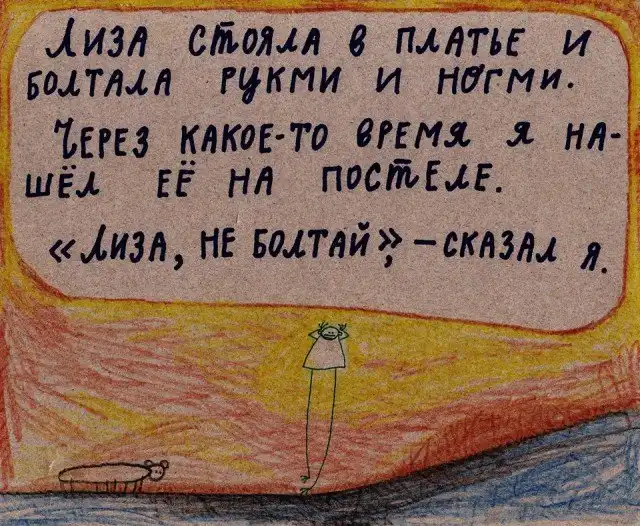 Лиза стояла в платье и
болтала рукми и ногми.
Через какое-то время я на-
шёл её на постеле.
«Лиза, не болтай», – сказал я.